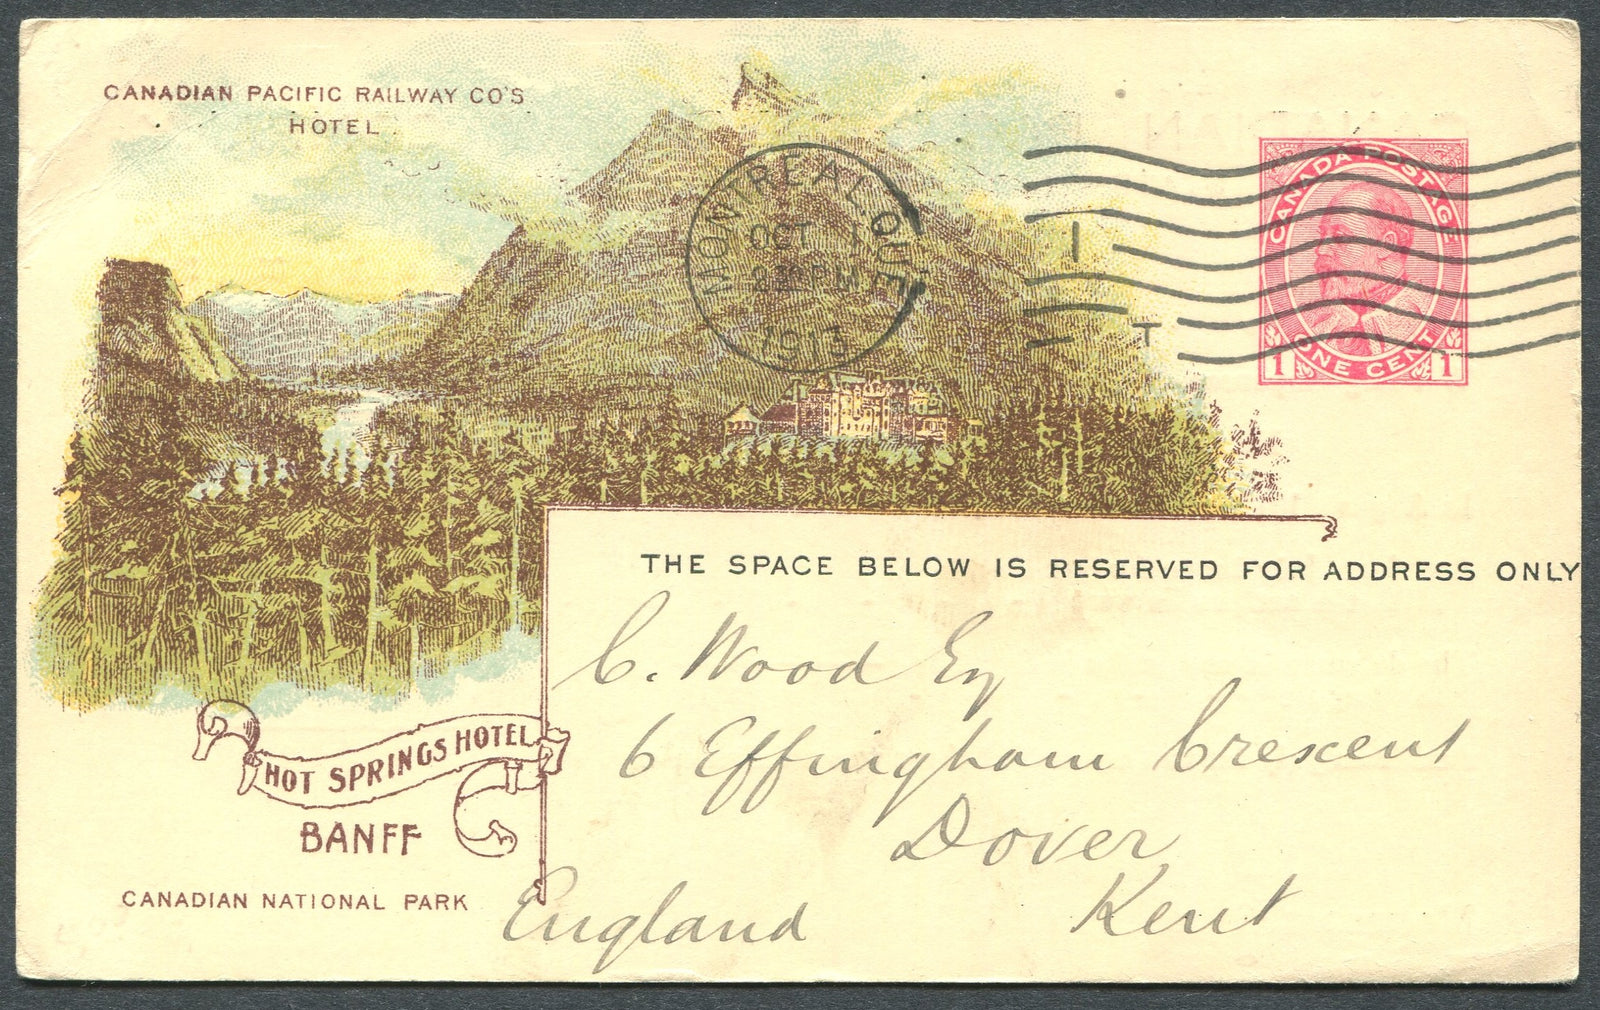 CANADIAN PACIFIC RAILWAY CO'S
HOTEL
MONTREAL, QUE.
OCT 1
2 30 PM
1913
I
T
CANADA POSTAGE
1 ONE CENT 1
THE SPACE BELOW IS RESERVED FOR ADDRESS ONLY
C. Wood Esq
6 Effingham Crescent
Dover
Kent
England
HOT SPRINGS HOTEL
BANFF
CANADIAN NATIONAL PARK